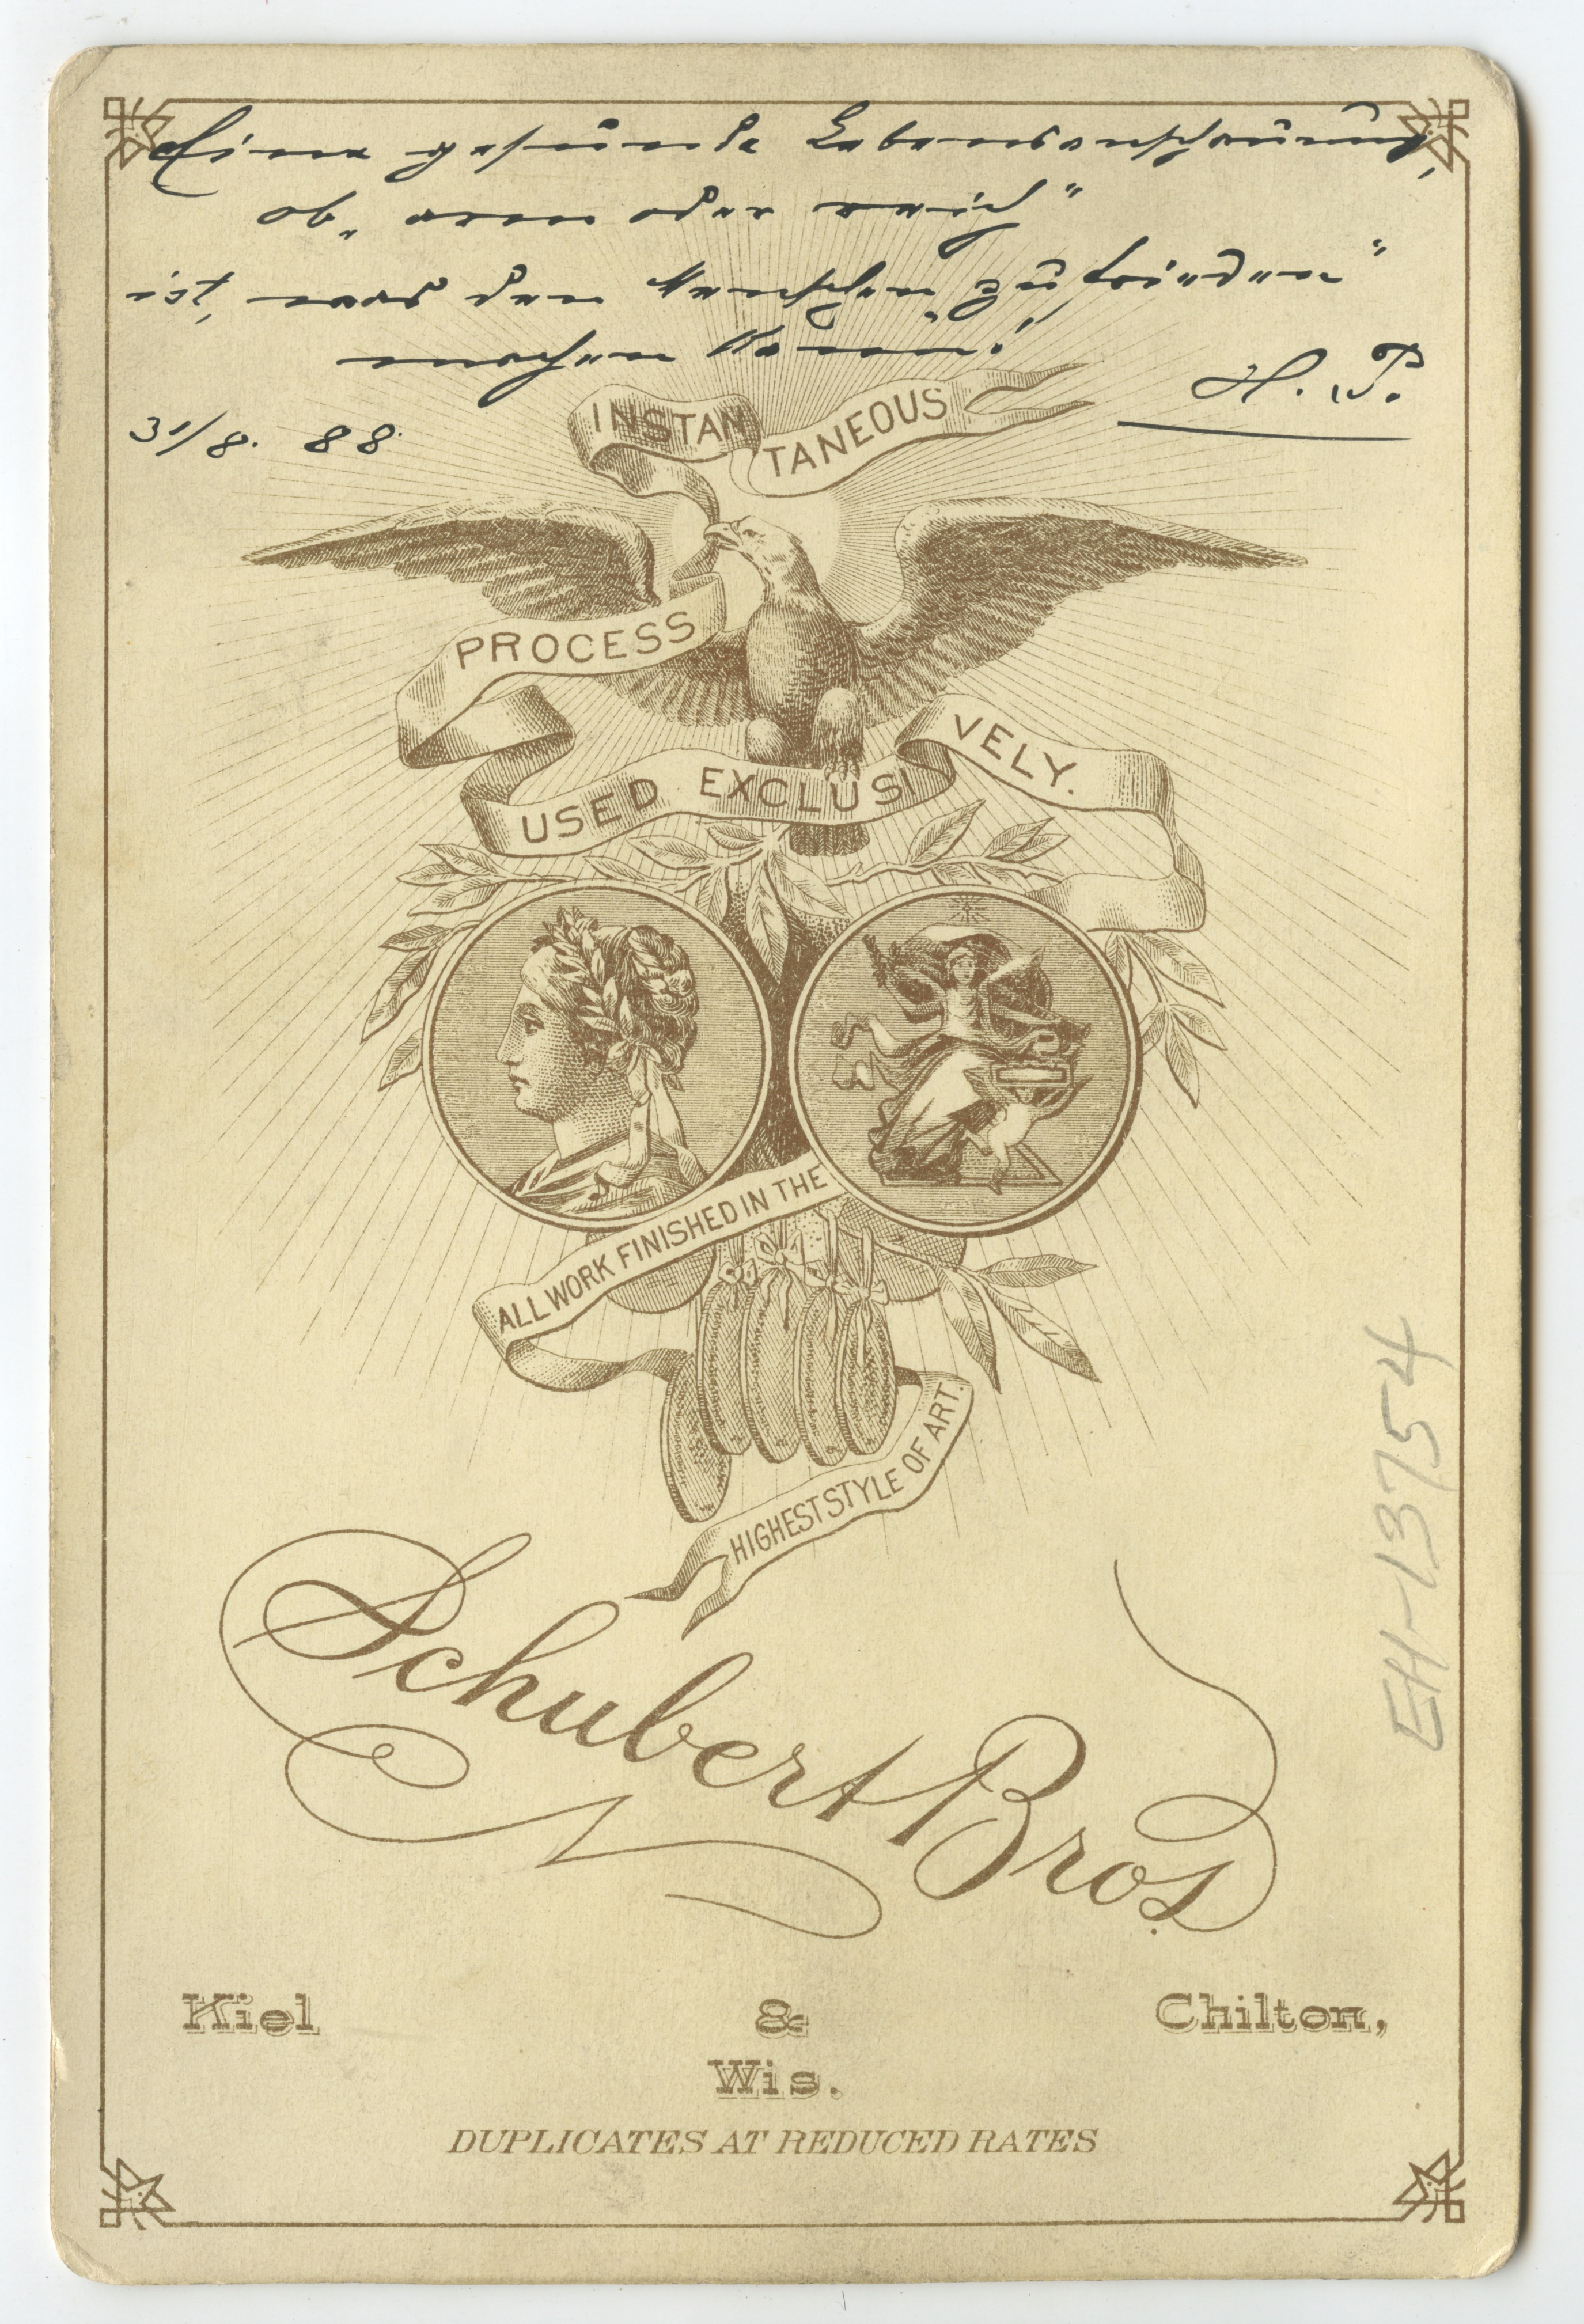 Eine gesunde Lebensanschauung,
ob „arm oder reich"
ist, was den Menschen „zufrieden"
machen kann!
H. P.
31/8. 88.
INSTANTANEOUS
PROCESS
USED EXCLUSIVELY.
ALL WORK FINISHED IN THE
HIGHEST STYLE OF ART.
Schubert Bros.
Kiel & Chilton,
Wis.
DUPLICATES AT REDUCED RATES
EH-13754